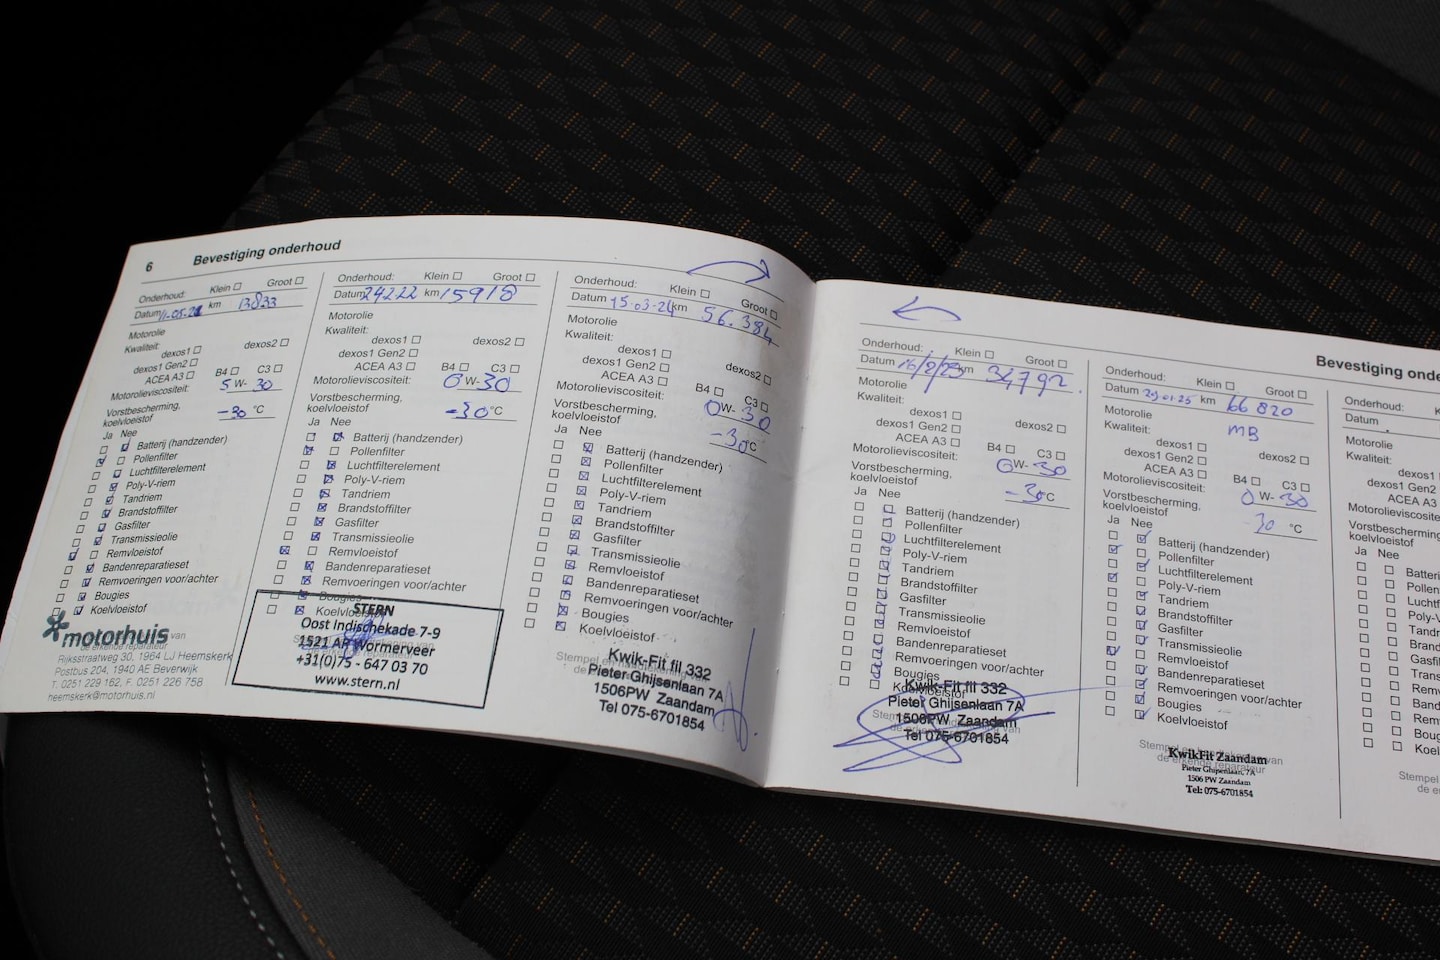 6 Bevestiging onderhoud
Onderhoud: Klein Groot
Datum km 13833
Motorolie
Kwaliteit:
dexos1 dexos2
dexos1 Gen2
ACEA A3 B4 C3
Motorolieviscositeit: 5 W- 30
Vorstbescherming,
koelvloeistof -30 °C
Ja Nee
Batterij (handzender)
Pollenfilter
Luchtfilterelement
Poly-V-riem
Tandriem
Brandstoffilter
Gasfilter
Transmissieolie
Remvloeistof
Bandenreparatieset
Remvoeringen voor/achter
Bougies
Koelvloeistof
motorhuis
van
de erkende reparateur
Rijksstraatweg 30, 1964 LJ Heemskerk
Postbus 204, 1940 AE Beverwijk
T. 0251 229 162, F. 0251 226 758
heemskerk@motorhuis.nl
Onderhoud: Klein Groot
Datum 24222 km 15918
Motorolie
Kwaliteit:
dexos1 dexos2
dexos1 Gen2
ACEA A3 B4 C3
Motorolieviscositeit: 0 W- 30
Vorstbescherming,
koelvloeistof -30 °C
Ja Nee
Batterij (handzender)
Pollenfilter
Luchtfilterelement
Poly-V-riem
Tandriem
Brandstoffilter
Gasfilter
Transmissieolie
Remvloeistof
Bandenreparatieset
Remvoeringen voor/achter
Bougies
Koelvloeistof
STERN
Oost Indischekade 7-9
1521 AP Wormerveer
+31(0)75 - 647 03 70
www.stern.nl
Onderhoud: Klein Groot
Datum 15-03-24 km 56.384
Motorolie
Kwaliteit:
dexos1 dexos2
dexos1 Gen2
ACEA A3 B4 C3
Motorolieviscositeit: 0 W- 30
Vorstbescherming,
koelvloeistof -30 °C
Ja Nee
Batterij (handzender)
Pollenfilter
Luchtfilterelement
Poly-V-riem
Tandriem
Brandstoffilter
Gasfilter
Transmissieolie
Remvloeistof
Bandenreparatieset
Remvoeringen voor/achter
Bougies
Koelvloeistof
Kwik-Fit fil 332
Pieter Ghijsenlaan 7A
1506PW Zaandam
Tel 075-6701854
Bevestiging onde
Onderhoud: Klein Groot
Datum 16/2/23 km 34792.
Motorolie
Kwaliteit:
dexos1 dexos2
dexos1 Gen2
ACEA A3 B4 C3
Motorolieviscositeit: 0 W- 30
Vorstbescherming,
koelvloeistof -30 °C
Ja Nee
Batterij (handzender)
Pollenfilter
Luchtfilterelement
Poly-V-riem
Tandriem
Brandstoffilter
Gasfilter
Transmissieolie
Remvloeistof
Bandenreparatieset
Remvoeringen voor/achter
Bougies
Koelvloeistof
Kwik-Fit fil 332
Pieter Ghijsenlaan 7A
1506PW Zaandam
Tel 075-6701854
Onderhoud: Klein Groot
Datum 29-01-25 km 66820
Motorolie MB
Kwaliteit:
dexos1 dexos2
dexos1 Gen2
ACEA A3 B4 C3
Motorolieviscositeit: 0 W- 30
Vorstbescherming,
koelvloeistof -30 °C
Ja Nee
Batterij (handzender)
Pollenfilter
Luchtfilterelement
Poly-V-riem
Tandriem
Brandstoffilter
Gasfilter
Transmissieolie
Remvloeistof
Bandenreparatieset
Remvoeringen voor/achter
Bougies
Koelvloeistof
Stempel en van
de erkende reparateur
KwikFit Zaandam
Pieter Ghijsenlaan, 7A
1506 PW Zaandam
Tel: 075-6701854
Onderhoud: K
Datum
Motorolie
Kwaliteit:
dexos1
dexos1 Gen2
ACEA A3
Motorolieviscositeit
Vorstbescherming,
koelvloeistof
Ja Nee
Batteri
Pollen
Luchtf
Poly-V
Tandr
Brand
Gasfi
Trans
Remv
Band
Rem
Boug
Koel
Stempel
de e